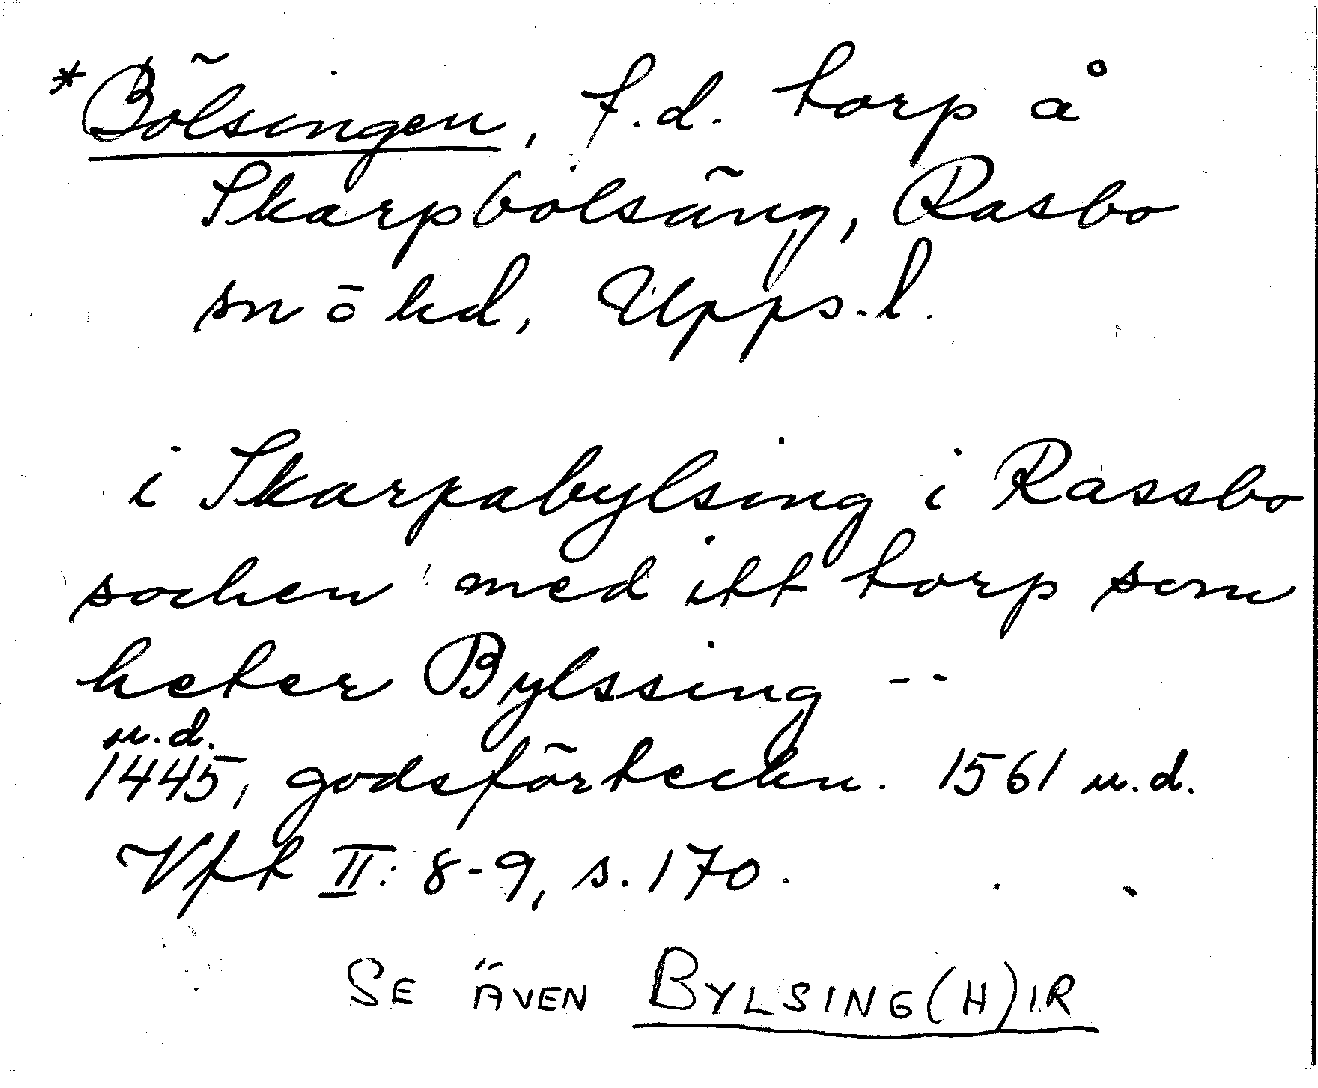 *Bölsingen, f.d. torp å
Skarpbolsäng, Rasbo
sn o hd, Upps.l.
i Skarpabylsing i Rassbo
sochen med itt torp som
heter Bylssing --
u.d.
1445, godsförteckn. 1561 u.d.
Vfr II: 8-9, s. 170.
SE ÄVEN BYLSING(H)IR